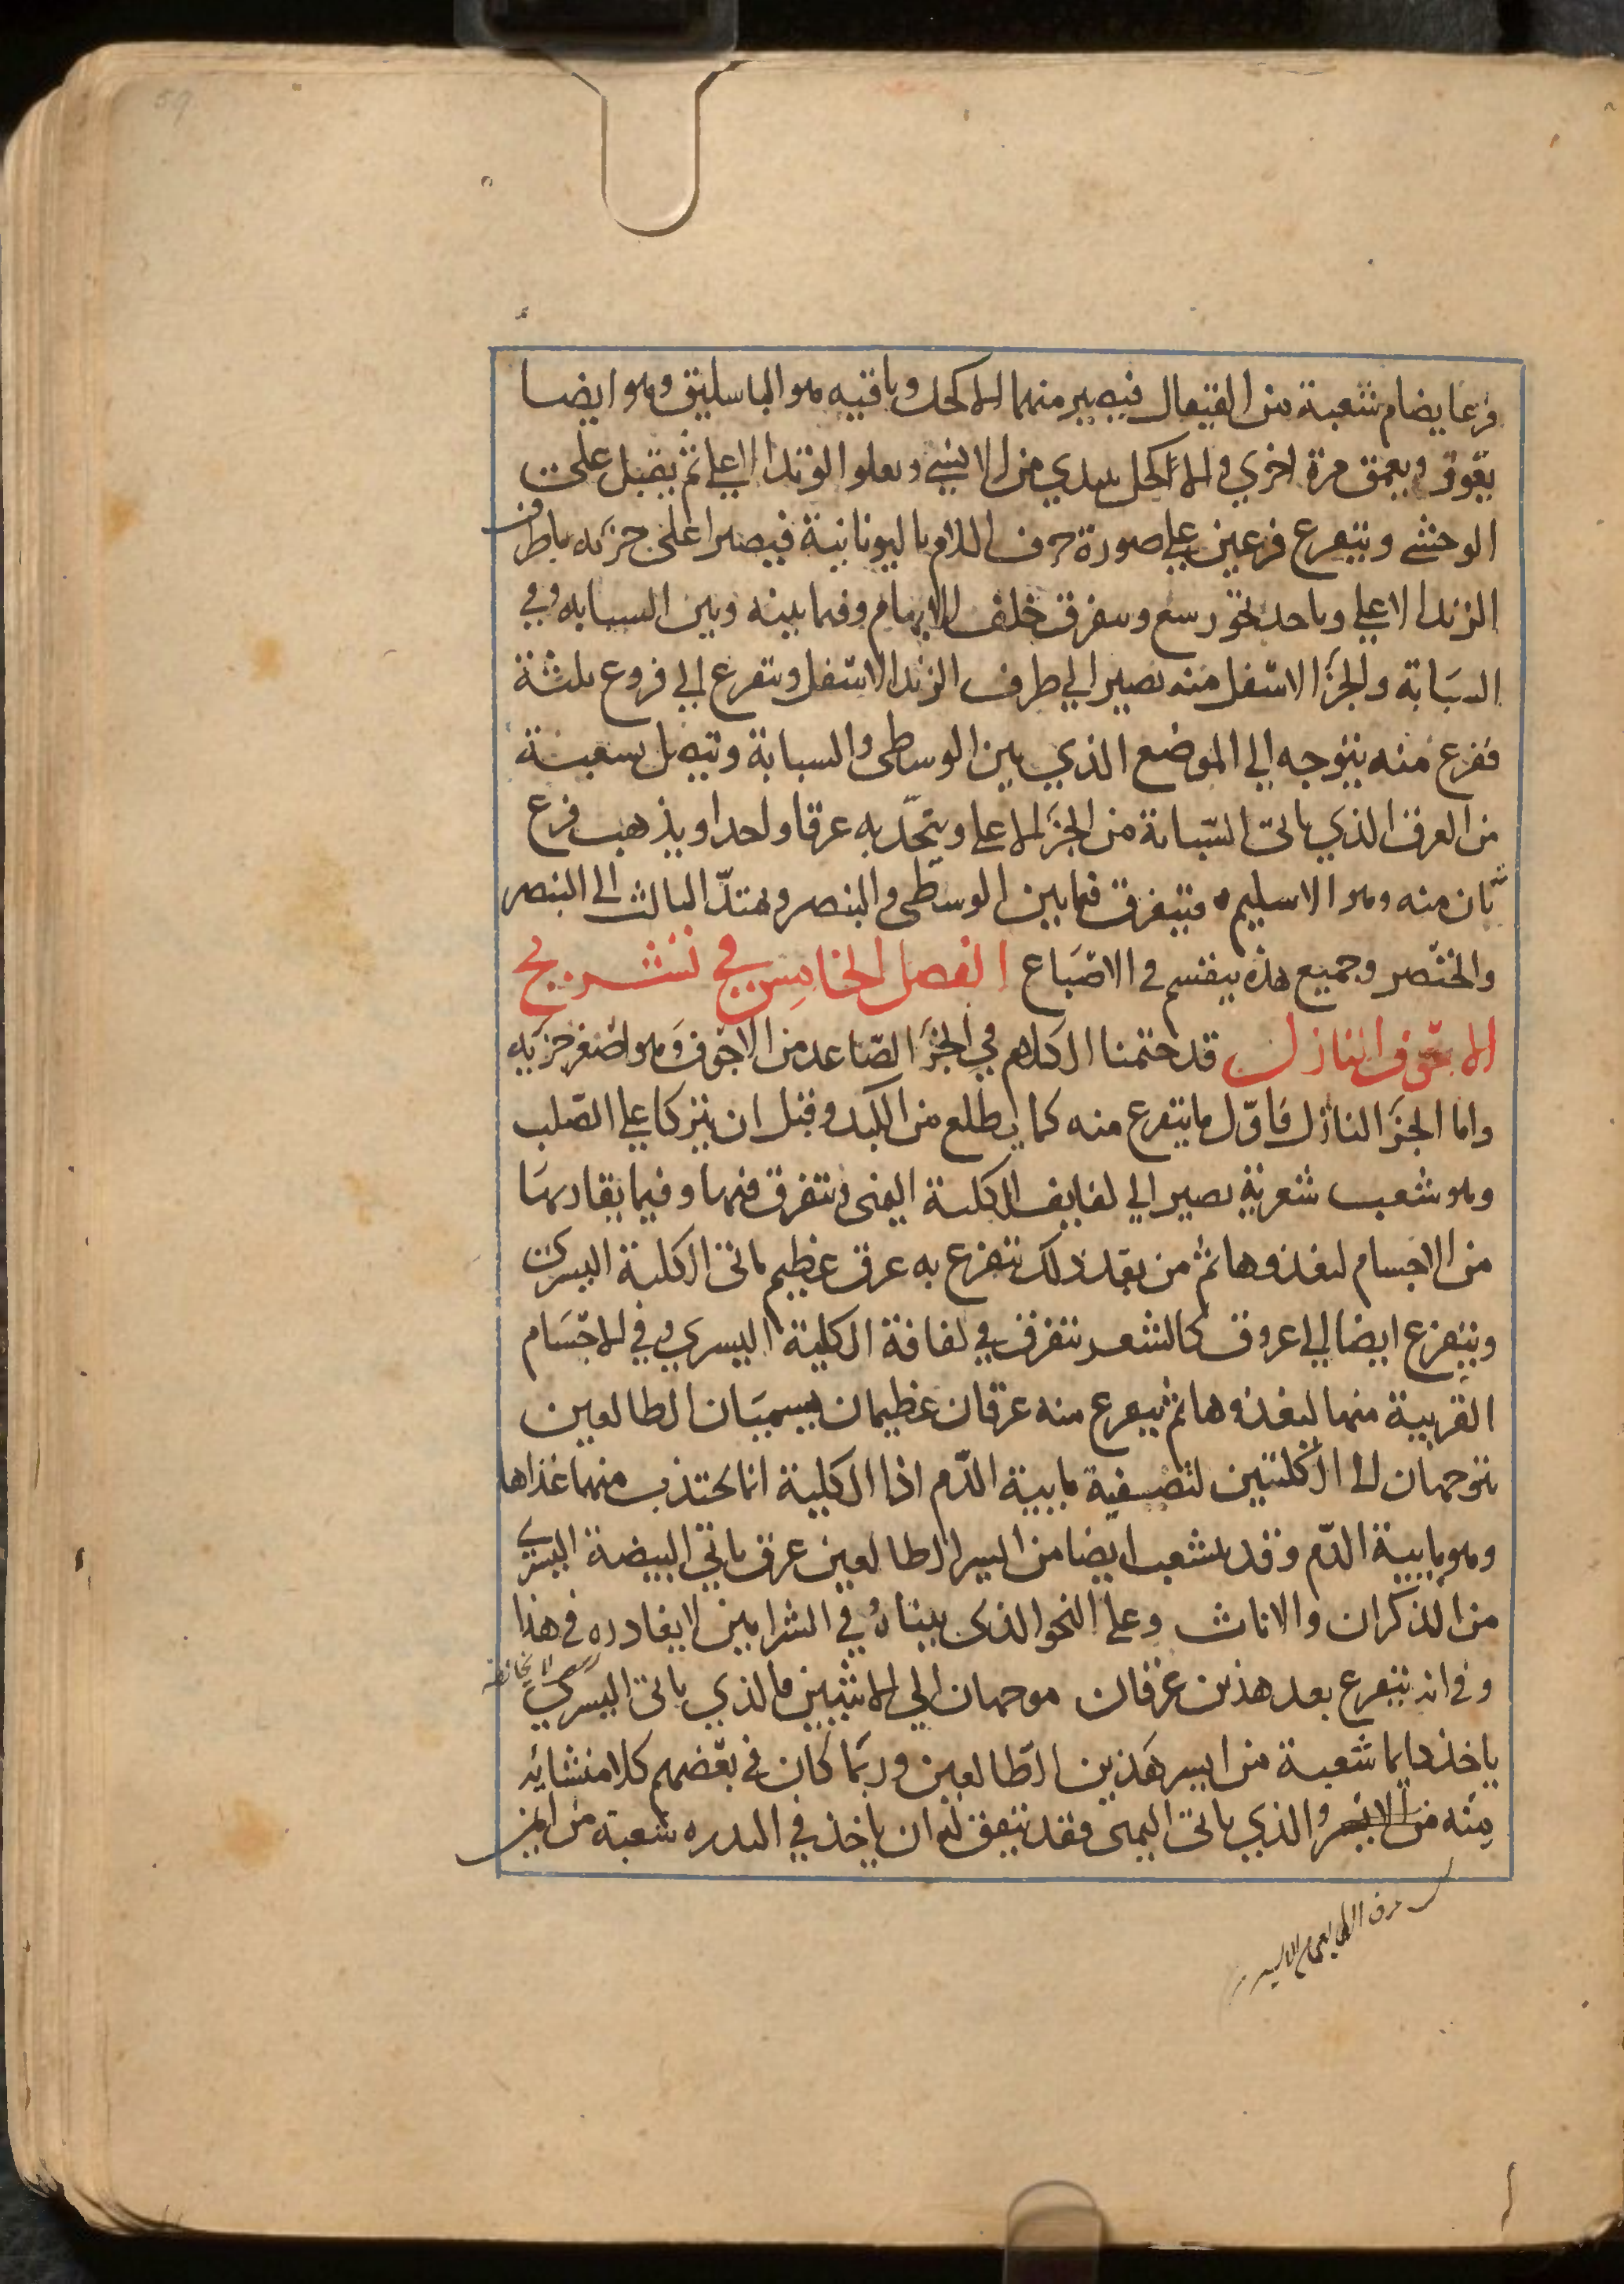 59
فرعا يضام شعبة من القيفال فيصير منهما الاكحل وباقيه هو الباسليق وهو ايضا
يغوق ويعمق مرة اخري والاكحل يبتدي من الانسي ويعلوا الزند الاعلي ثم يقبل على
الوحشي ويتفرع فرعين علي صورة حرف اللام باليونانية فيصير اعلى جزئه ياطرف
الزند الاعلي وياخذ نحو رسغ ويتفرق خلف الابهام وفيما بينه وبين السبابه وفي
السبابة والجزء الاسفل منه يصير الي طرف الزند الاسفل ويتفرع الي فروع ثلثة
ففرع منه يتوجه الي الموضع الذي بين الوسطى والسبابة ويتصل بشعبة
من العرق الذي ياتى السبابة من الجزء الاعلي ويتحد به عرقا واحدا ويذهب فرع
ثان منه وهو الاسليم فيتفرق فيما بين الوسطى والبنصر ويمتد الثالث الى البنصر
والخنصر وجميع هذه ينقسم في الاصباع الفصل الخامس في تشريح
الاجوف النازل قد ختمنا الكلام في الجزء الصاعد من الاجوف وهو اصغر جزئيه
واما الجزء النازل فاول ما يتفرع منه كما يطلع من الكبد وقبل ان يتركا علي الصلب
وهو شعب شعرية يصير الي لفايف الكلية اليمنى ويتفرق فيها وفيما يقاربها
من الاجسام ليغذوها ثم من بعد ذلك يتفرع به عرق عظيم ياتى الكلية اليسرى
ويتفرع ايضا الي عروق كالشعر يتفرق في لفافة الكلية اليسري وفي الاجسام
القريبة منها ليغذوها ثم يتفرع منه عرقان عظيمان يسميان الطالعين
يتوجهان الى الكليتين لتصفية مايية الدم اذا الكلية انما يجتذب منهما غذاها
وهو مايية الدم وقد يتشعب ايضا من ايسر الطالعين عرق ياتي البيضة اليسري
من الذكران والاناث وعلى النحو الذي بيناه في الشرايين لا يغادره في هذا
وفي انه يتفرع بعد هذين عرقان موجهان الي الانثيين فالذي ياتى اليسرى
ياخذ دايما شعبة من ايسر هذين الطالعين وربما كان في بعضهم كلا منشائه
منه من الايسر والذي ياتى اليمى فقد يتفق له ان ياخذ في الندره شعبة من ايمن